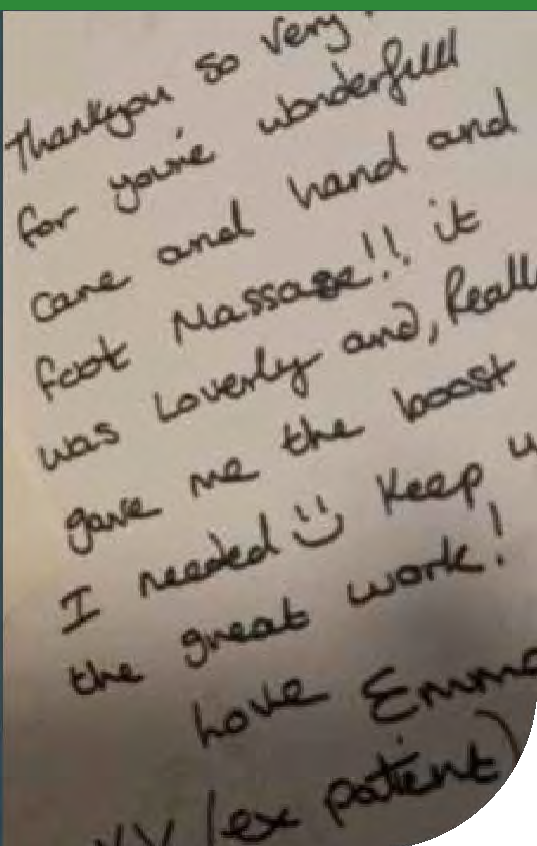 Thankyou so very
for youre wonderfull
care and hand and
foot Massage!! it
was Loverly and, Reall
gave me the boost
I needed Keep u
the great work!
Love Emma
(ex patient)